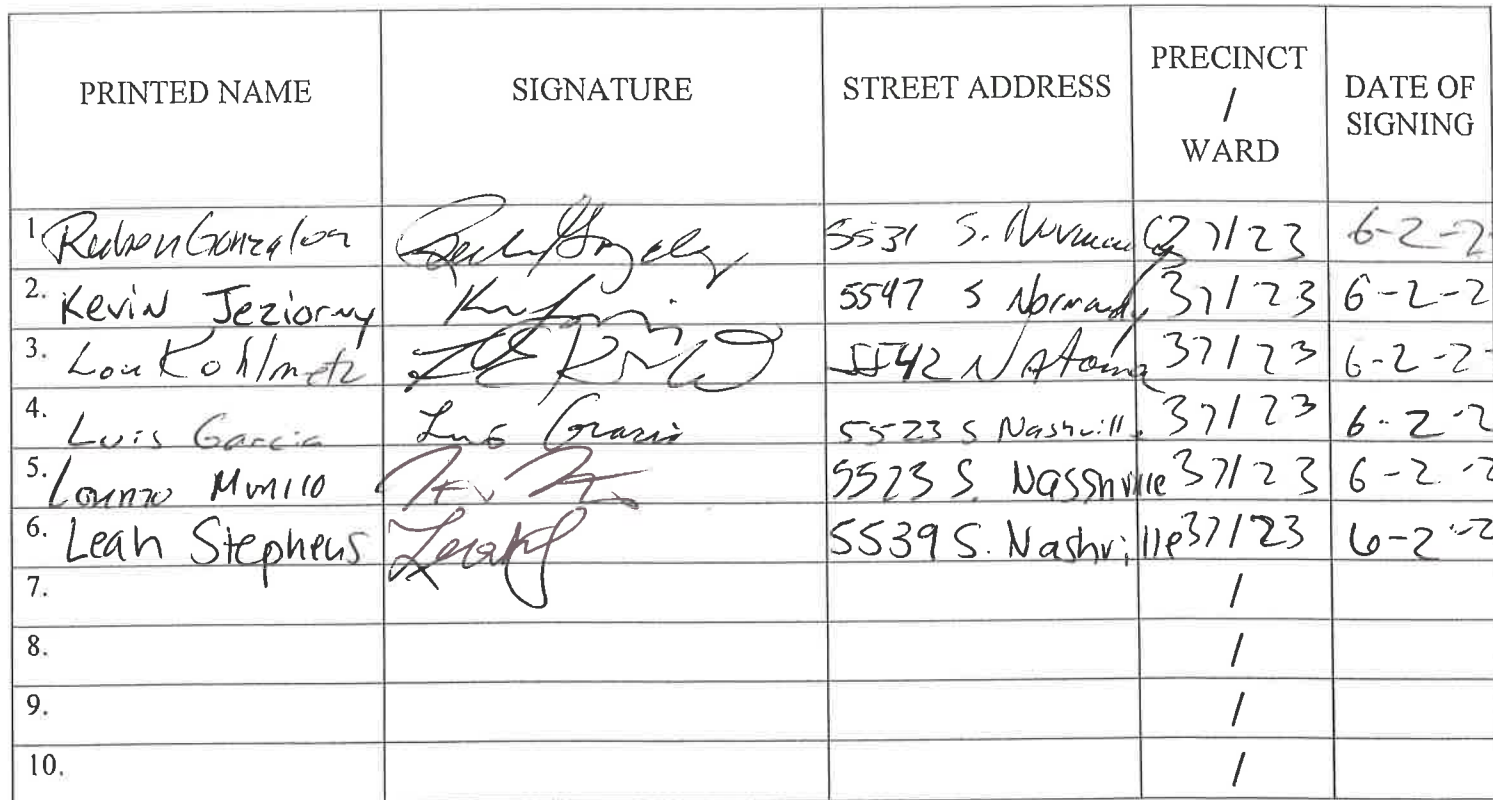 PRINTED NAME SIGNATURE STREET ADDRESS PRECINCT / WARD DATE OF SIGNING
1. Ruben 5531 S. 37/23 6-2-2
2. Kevin Jeziorny 5547 S Normandy 37/23 6-2-2
3. Lou Kohlmetz 5542 Natoma 37/23 6-2-2
4. Luis Garcia 5523 S Nashvill 37/23 6-2-2
5. 5523 S. Nasshville 37/23 6-2-2
6. Leah Stephens 5539 S. Nashville 37/23 6-2-2
7. /
8. /
9. /
10. /